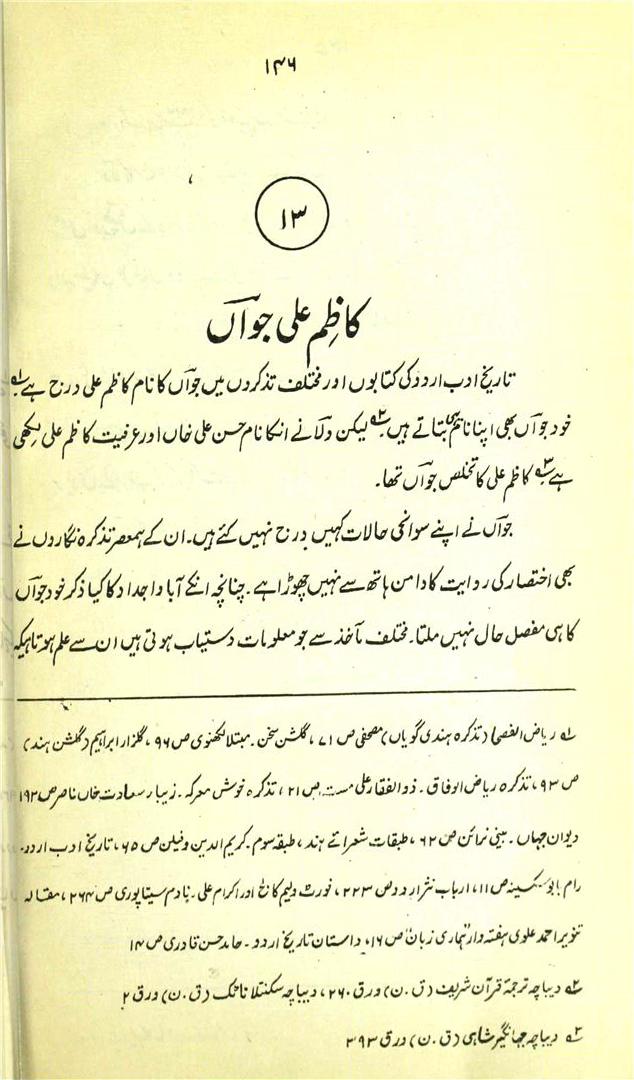 ۱۴۶
۱۳
کاظِم علی جواؔں
تاریخ ادب اردو کی کتابوں اور مختلف تذکروں میں جواؔں کا نام کاظم علی درج ہے۱؎
خود جواؔں بھی اپنا نام یہی بتاتے ہیں۲؎ لیکن ولاؔ نے انکا نام حسن علی خاں اور عرفیت کاظم علی لکھی
ہے۳؎ کاظم علی کا تخلص جواؔں تھا۔
جواؔں نے اپنے سوانحی حالات کہیں درج نہیں کئے ہیں۔ ان کے ہمعصر تذکرہ نگاروں نے
بھی اختصار کی روایت کا دامن ہاتھ سے نہیں چھوڑا ہے۔ چنانچہ انکے آبا و اجداد کا کیا ذکر خود جواؔں
کا ہی مفصل حال نہیں ملتا۔ مختلف مآخذ سے جو معلومات دستیاب ہوتی ہیں ان سے علم ہوتا ہیکہ
۱؎ ریاض الفصحا (تذکرہ ہندی گویاں) مصحفی ص ۷۱، گلشن سخن۔ مبتلا لکھنوی ص ۹۶، گلزار ابراہیم (گلشن ہند)
ص ۹۳، تذکرہ ریاض الوفاق۔ ذوالفقار علی مست ص ۲۱، تذکرہ خوش معرکہ۔ زیبا سعادت خاں ناصر ص ۱۹۲
دیوان جہاں۔ بینی نرائن ص ۶۲، طبقات شعرائے ہند، طبقہ سوم۔ کریم الدین و فیلن ص ۶۵، تاریخ ادب اردو۔
رام بابو سکسینہ ص ۱۱، ارباب نثر اردو ص ۲۲۳، فورٹ ولیم کالج اور اکرام علی۔ نادم سیتاپوری ص ۲۶۴، مقالہ
تنویر احمد علوی ہفتہ وار ہماری زبان ص ۱۶، داستان تاریخ اردو۔ حامد حسن قادری ص ۱۴
۲؎ دیباچہ ترجمۂ قرآن شریف (ق۔ن) ورق ۲۶۰، دیباچہ سکنتلا ناٹک (ق۔ن) ورق ۲
۳؎ دیباچہ جہانگیر شاہی (ق۔ن) ورق ۳۹۳